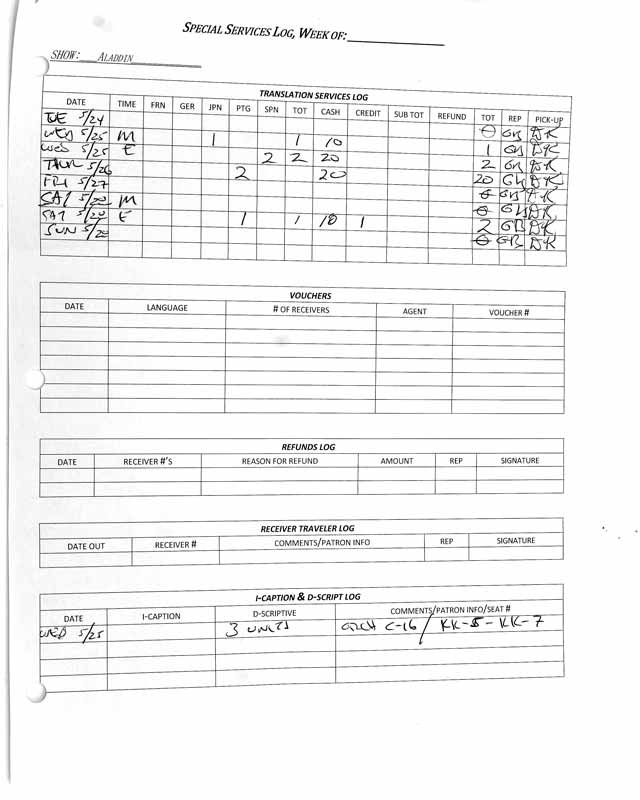 SPECIAL SERVICES LOG, WEEK OF:
SHOW: ALADDIN
TRANSLATION SERVICES LOG
DATE TIME FRN GER JPN PTG SPN TOT CASH CREDIT SUB TOT REFUND TOT REP PICK-UP
TUE 5/24 0 GB DK
WED 5/25 M 1 1 10 1 GB DK
WED 5/25 E 2 2 20 2 GB DK
THUR 5/26 2 20 20 GB DK
FRI 5/27 0 GB DK
SAT M 0 GB DK
SAT E 1 1 10 1 2 GB DK
SUN 0 GB DK
VOUCHERS
DATE LANGUAGE # OF RECEIVERS AGENT VOUCHER #
REFUNDS LOG
DATE RECEIVER #'S REASON FOR REFUND AMOUNT REP SIGNATURE
RECEIVER TRAVELER LOG
DATE OUT RECEIVER # COMMENTS/PATRON INFO REP SIGNATURE
I-CAPTION & D-SCRIPT LOG
DATE I-CAPTION D-SCRIPTIVE COMMENTS/PATRON INFO/SEAT #
WED 5/25 3 UNITS ORCH C-16 / KK-5 - KK-7